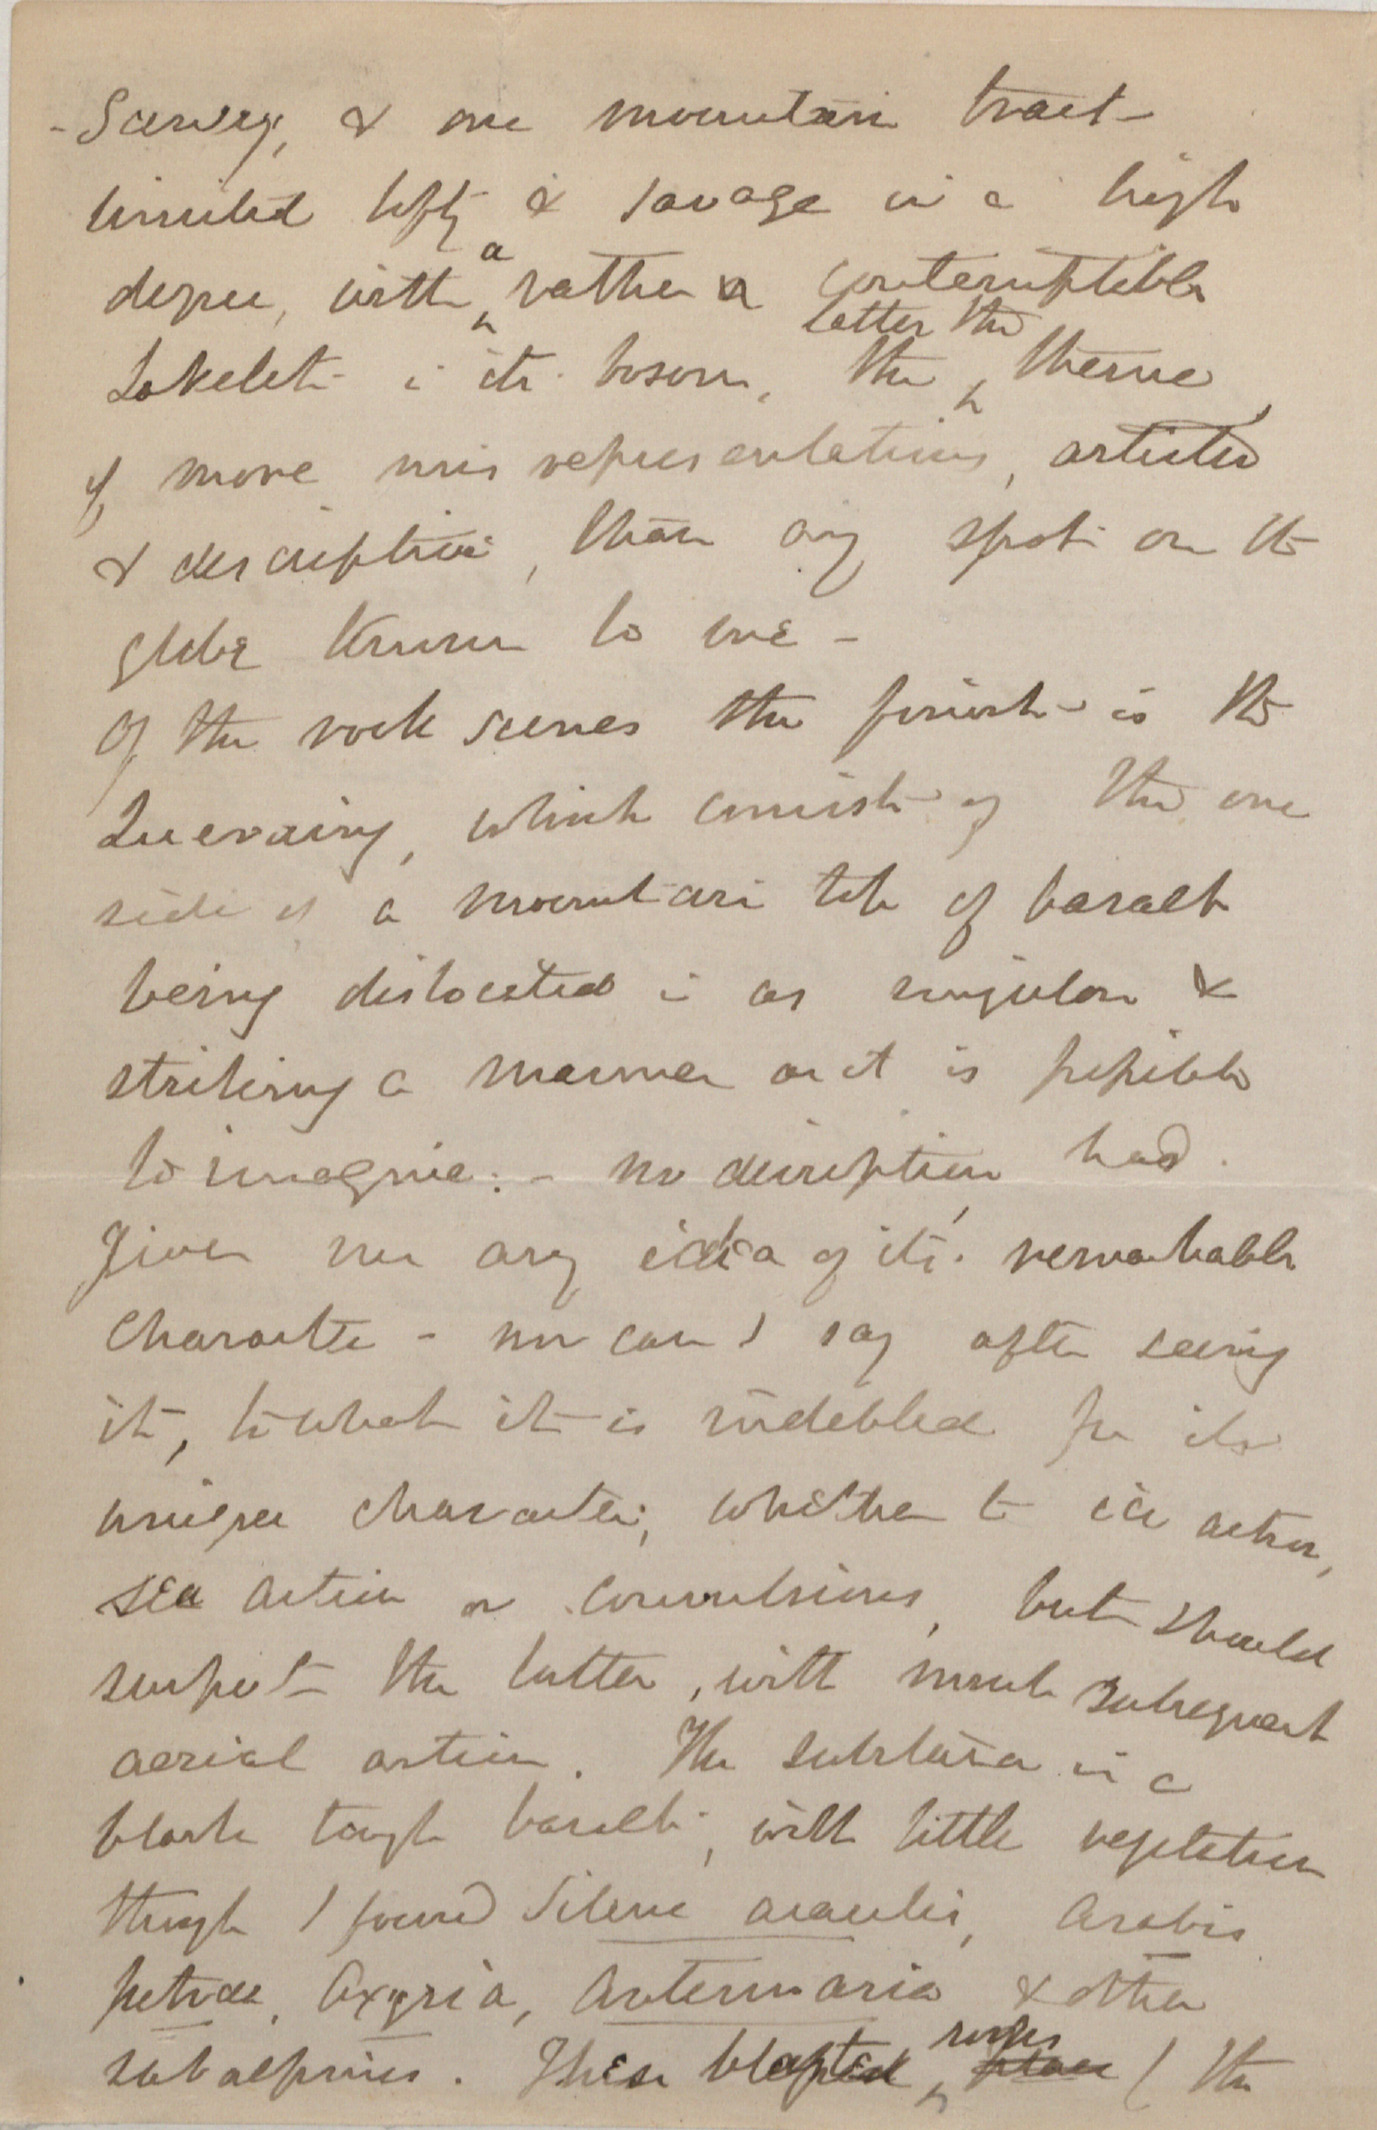 -Scenery, & one mountain tract
limited lofty & savage in a high
degree, with a rather a contemptible
Lakelet in its bosom, the latter the theme
of more misrepresentations, artistic
& descriptive, than any spot on the
globe known to me -
Of the rock scenes the finest is the
Queraing, which consists of the one
side of a mountain top of basalt
being dislocated in as singular &
striking a manner as it is possible
to imagine: - no description had
given me any idea of its remarkable
character - nor can I say after seeing
it, to what it is indebted for its
unique character, whether to ice action,
sea action or convulsions, but should
suspect the latter, with much subsequent
aerial action. The substance is a
black tough basalt, with little vegetation
though I found Silene acaulis, Arabis
petraea, Oxyria, Antennaria & other
subalpines. These blasted (the